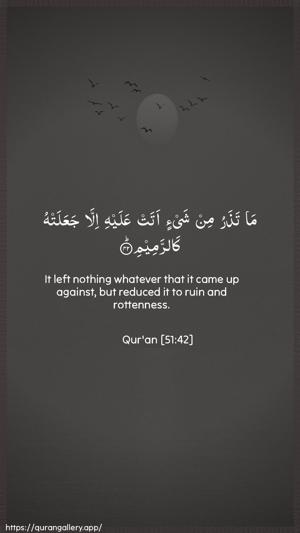 مَا تَذَرُ مِنْ شَيْءٍ اَتَتْ عَلَيْهِ اِلَّا جَعَلَتْهُ
كَالرَّمِيْمِ ۝۴۲
It left nothing whatever that it came up
against, but reduced it to ruin and
rottenness.
Qur'an [51:42]
https://qurangallery.app/